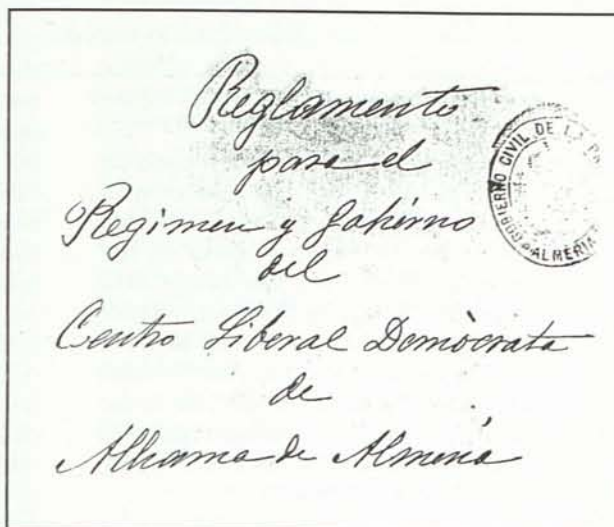 Reglamento
para el
Regimen y Gobierno
del
Centro Liberal Demòcrata
de
Alhama de Almería
GOBIERNO CIVIL DE LA
ALMERIA